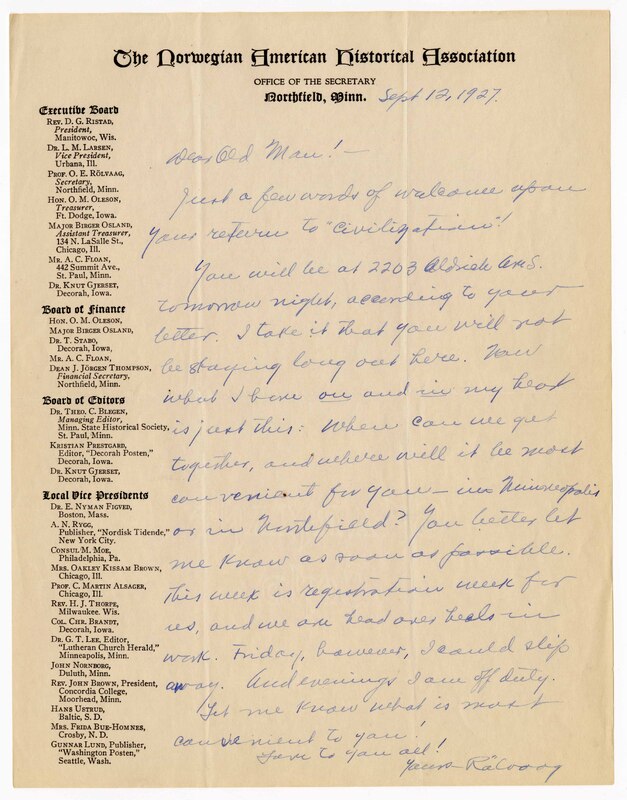 The Norwegian American Historical Association
OFFICE OF THE SECRETARY
Northfield, Minn.
Sept 12, 1927.
Executive Board
REV. D. G. RISTAD,
President,
Manitowoc, Wis.
DR. L. M. LARSEN,
Vice President,
Urbana, Ill.
PROF. O. E. RÖLVAAG,
Secretary,
Northfield, Minn.
HON. O. M. OLESON,
Treasurer,
Ft. Dodge, Iowa.
MAJOR BIRGER OSLAND,
Assistant Treasurer,
134 N. LaSalle St.,
Chicago, Ill.
MR. A. C. FLOAN,
442 Summit Ave.,
St. Paul, Minn.
DR. KNUT GJERSET,
Decorah, Iowa.
Board of Finance
HON. O. M. OLESON,
MAJOR BIRGER OSLAND,
DR. T. STABO,
Decorah, Iowa,
MR. A. C. FLOAN,
DEAN J. JÖRGEN THOMPSON,
Financial Secretary,
Northfield, Minn.
Board of Editors
DR. THEO. C. BLEGEN,
Managing Editor,
Minn. State Historical Society,
St. Paul, Minn.
KRISTIAN PRESTGARD,
Editor, "Decorah Posten,"
Decorah, Iowa.
DR. KNUT GJERSET,
Decorah, Iowa.
Local Vice Presidents
DR. E. NYMAN FIGVED,
Boston, Mass.
A. N. RYGG,
Publisher, "Nordisk Tidende,"
New York City.
CONSUL M. MOE,
Philadelphia, Pa.
MRS. OAKLEY KISSAM BROWN,
Chicago, Ill.
PROF. C. MARTIN ALSAGER,
Chicago, Ill.
REV. H. J. THORPE,
Milwaukee. Wis.
COL. CHR. BRANDT,
Decorah, Iowa.
DR. G. T. LEE, Editor,
"Lutheran Church Herald,"
Minneapolis, Minn.
JOHN NORNBORG,
Duluth, Minn.
REV. JOHN BROWN, President,
Concordia College,
Moorhead, Minn.
HANS USTRUD,
Baltic, S. D.
MRS. FRIDA BUE-HOMNES,
Crosby, N. D.
GUNNAR LUND, Publisher,
"Washington Posten,"
Seattle, Wash.
Dear Old Man! —
Just a few words of welcome upon
your return to "Civilization"!
You will be at 2203 Aldrich Ave S.
tomorrow night, according to your
letter. I take it that you will not
be staying long out here. Now
what I have on and in my heart
is just this: When can we get
together, and where will it be most
convenient for you — in Minneapolis
or in Northfield? You better let
me know as soon as possible.
This week is registration week for
us, and we are head over heels in
work. Friday, however, I could slip
away. And evenings I am off duty.
Let me know what is most
convenient to you!
Love to you all!
Yours Rölvaag